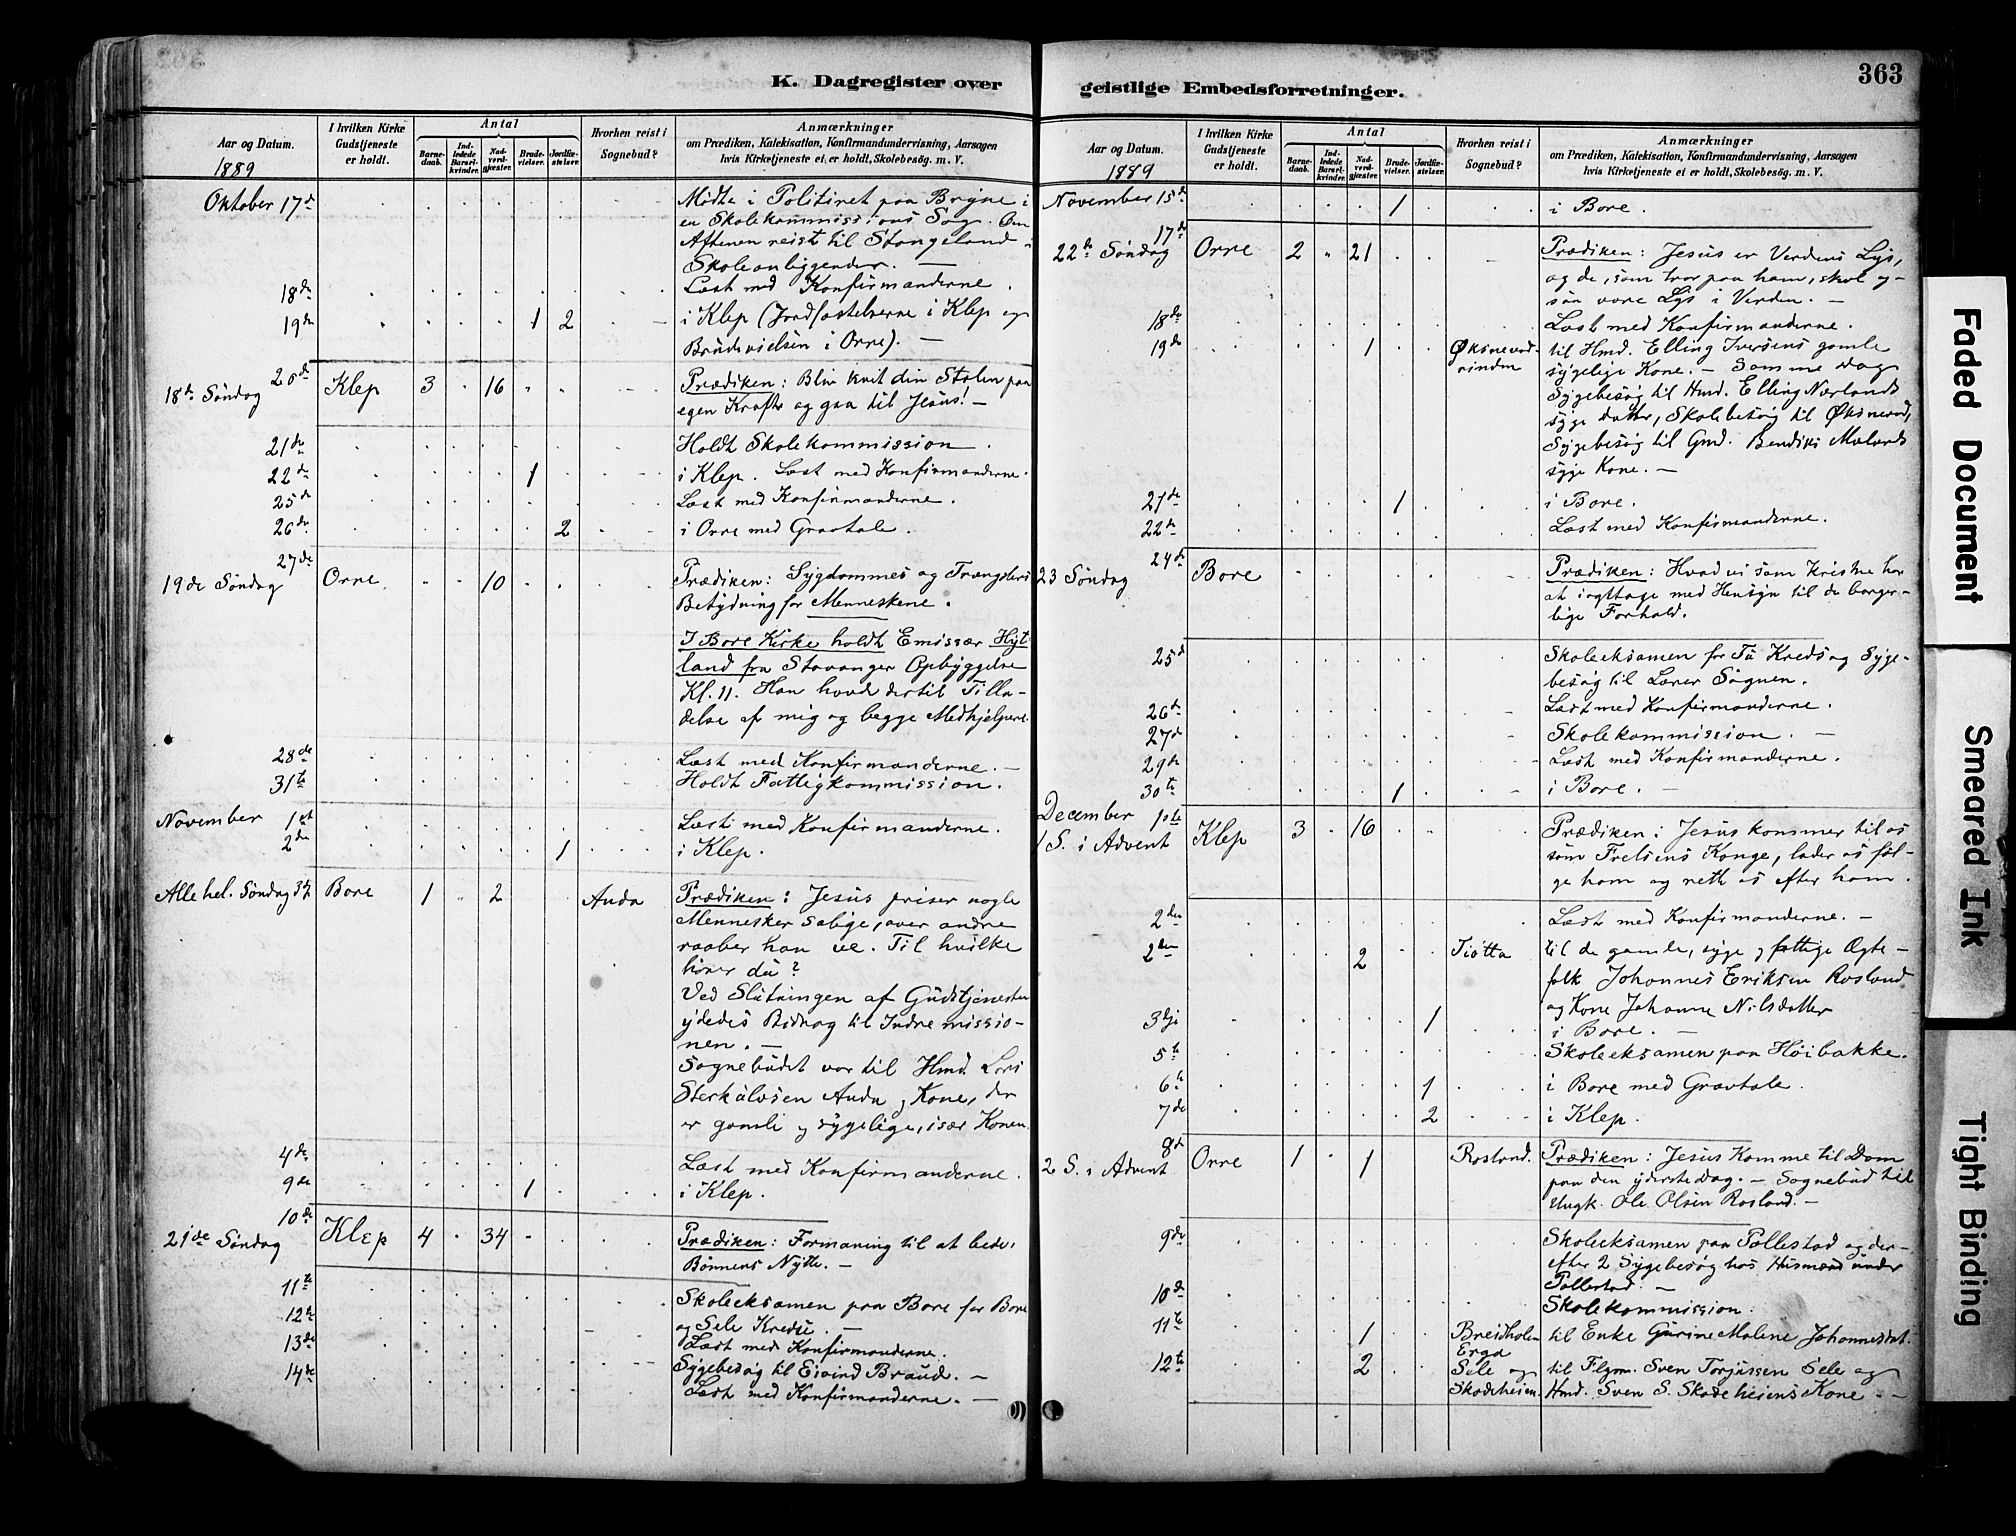 K. Dagregister over
Aar og Datum.
1889
I hvilken Kirke Gudstjeneste er holdt.
Antal
Barnedaab.
Indledede Barselkvinder.
Nadverdgjæster.
Brudevielser.
Jordfæstelser.
Hvorhen reist i Sognebud?
Anmærkninger
om Prædiken, Katekisation, Konfirmandundervisning, Aarsagen
hvis Kirketjeneste ei er holdt, Skolebesög. m. V.
Oktober 17de Mødte i Politiret paa Bryne i
en Skolekommissions Sag. Om
Aftenen reist til Stangeland i
Skoleanliggender. —
18de Læst med Konfirmanderne.
19de 1 2 i Klep (Jordfæstelserne i Klep og
Brudevielsen i Orre). —
20de
18de Søndag Klep 3 16 Prædiken: Bliv kvit din Stolen paa
egen Kraft og gaa til Jesus! —
21de Holdt Skolekommission.
22de 1 i Klep. Læst med Konfirmanderne.
25de Læst med Konfirmanderne.
26de 2 i Orre med Gravtale.
27de
19de Søndag Orre 10 Prædiken: Sygdommes og Trængslers
Betydning for Menneskene.
I Bore Kirke holdt Emissær Høt-
land fra Stavanger Opbyggelse
Kl. 11. Han havde dertil Tilla-
delse af mig og begge Medhjelpere.
28de Læst med Konfirmanderne. —
31te Holdt Fattigkommission.
November 1ste Læst med Konfirmanderne.
2de 1 i Klep.
Alle hel. Søndag 3die Bore 1 2 Anda Prædiken: Jesus priser nogle
Mennesker salige, over andre
raaber han ve. Til hvilke
hører du?
Ved Slutningen af Gudstjenesten
ydedes Bidrag til Indremissio-
nen. —
Sognebudet var til Hmd. Lars
Anda og Kone, der
er gamle og sygelige, især Konen.
4de Læst med Konfirmanderne.
9de 1 i Klep.
10de
21de Søndag Klep 4 34 Prædiken: Formaning til at bede,
Bønnens Nytte. —
11te Skoleeksamen paa Bore for Bore
og Sele Kredse. —
12te Læst med Konfirmanderne.
13de Sygebesøg til Eivind Braud. —
14de Læst med Konfirmanderne. —
geistlige Embedsforretninger.
363
Aar og Datum.
1889
I hvilken Kirke Gudstjeneste er holdt.
Antal
Barnedaab.
Indledede Barselkvinder.
Nadverdgjæster.
Brudevielser.
Jordfæstelser.
Hvorhen reist i Sognebud?
Anmærkninger
om Prædiken, Katekisation, Konfirmandundervisning, Aarsagen
hvis Kirketjeneste ei er holdt, Skolebesög. m. V.
November 15de 1 i Bore.
17de
22de Søndag Orre 2 21 Prædiken: Jesus er Verdens Lys,
og de, som tror paa ham, skal og-
saa være Lys i Verden. —
18de Læst med Konfirmanderne.
19de 1 Øksnevad-
rinden til Hmd. Elling Iversens gamle
sygelige Kone. — Samme Dag
Sygebesøg til Hmd. Elling Nærlands
syge Datter, Skolebesøg til Øksnevad,
Sygebesøg til Gmd. Bendiks
syge Kone. —
21de 1 i Bore.
22de Læst med Konfirmanderne.
24de
23 Søndag Bore Prædiken: Hvad vi som Kristne har
at iagttage med Hensyn til de borger-
lige Forhold.
25de Skoleeksamen for Tu Kreds og Syge-
besøg til Lærer Sognen.
26de Læst med Konfirmanderne.
27de Skolekommission. —
29de Læst med Konfirmanderne.
30te 1 i Bore. —
December 1ste
1 S. i Advent Klep 3 16 Prædiken: Jesus kommer til os
som Frelsens Konge, lader os føl-
ge ham og rette os efter ham.
2den Læst med Konfirmanderne. —
2den 2 Tiøtta til de gamle, syge og fattige Ægte-
folk Johannes Eriksen Rosland
og Kone Johanne Nilsdatter
3die 1 i Bore. —
5te Skoleeksamen paa Høibakke.
6te 1 i Bore med Gravtale.
7de 2 i Klep.
8de
2 S. i Advent Orre 1 1 Rosland. Prædiken: Jesus Komme til Dom
paa den yderste Dag. — Sognebud til
Ungk. Ole Olsen Rosland. —
9de Skoleeksamen paa Pollestad og der-
efter 2 Sygebesøg hos Husmænd under
Pollestad. —
10de Skolekommission.
11te 1 Breidholen
Erga til Enke Gurine Malene Johannesdat.
12te 2 Sele og
Skadeheien. til Flgm. Sven Torjussen Sele og
Hmd. Sven S. Skadeheiens Kone. —
Faded Document
Smeared Ink
Tight Binding